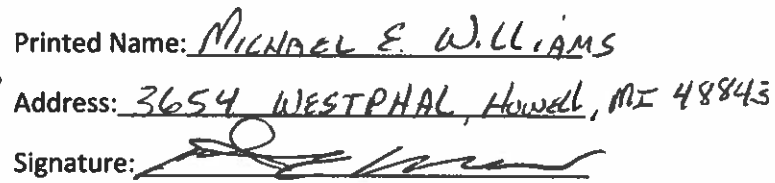 Printed Name: MICHAEL E. WILLIAMS
Address: 3654 WESTPHAL, Howell, MI 48843
Signature: